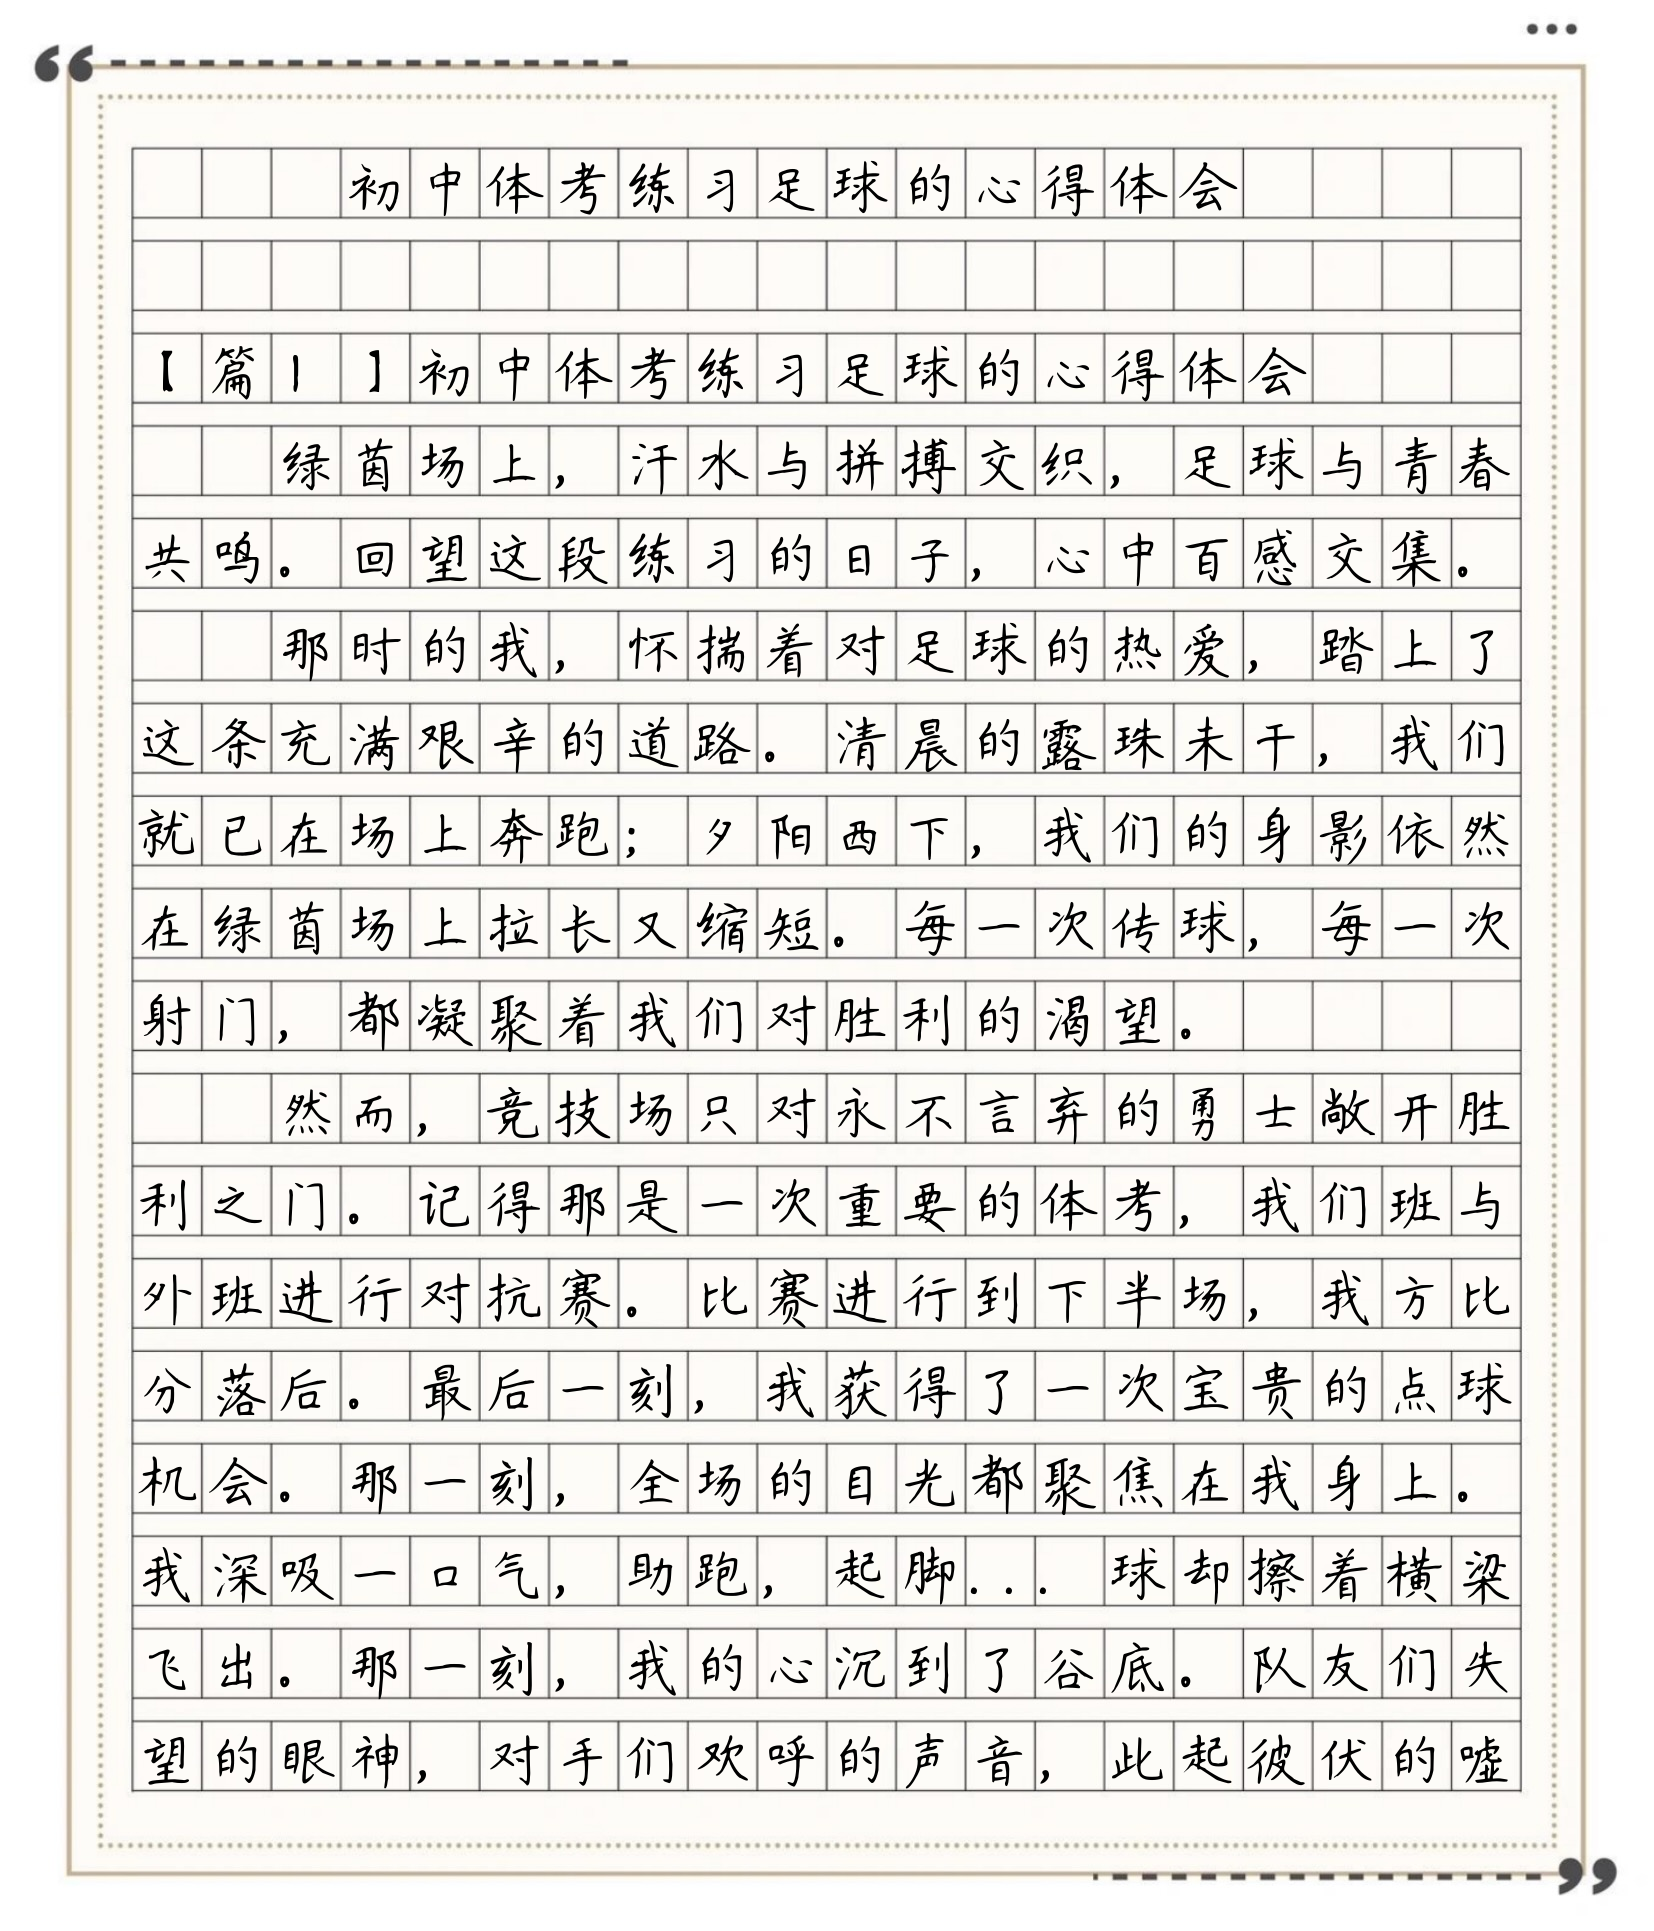 初中体考练习足球的心得体会
【篇1】初中体考练习足球的心得体会
绿茵场上，汗水与拼搏交织，足球与青春
共鸣。回望这段练习的日子，心中百感交集。
那时的我，怀揣着对足球的热爱，踏上了
这条充满艰辛的道路。清晨的露珠未干，我们
就已在场上奔跑；夕阳西下，我们的身影依然
在绿茵场上拉长又缩短。每一次传球，每一次
射门，都凝聚着我们对胜利的渴望。
然而，竞技场只对永不言弃的勇士敞开胜
利之门。记得那是一次重要的体考，我们班与
外班进行对抗赛。比赛进行到下半场，我方比
分落后。最后一刻，我获得了一次宝贵的点球
机会。那一刻，全场的目光都聚焦在我身上。
我深吸一口气，助跑，起脚... 球却擦着横梁
飞出。那一刻，我的心沉到了谷底。队友们失
望的眼神，对手们欢呼的声音，此起彼伏的嘘